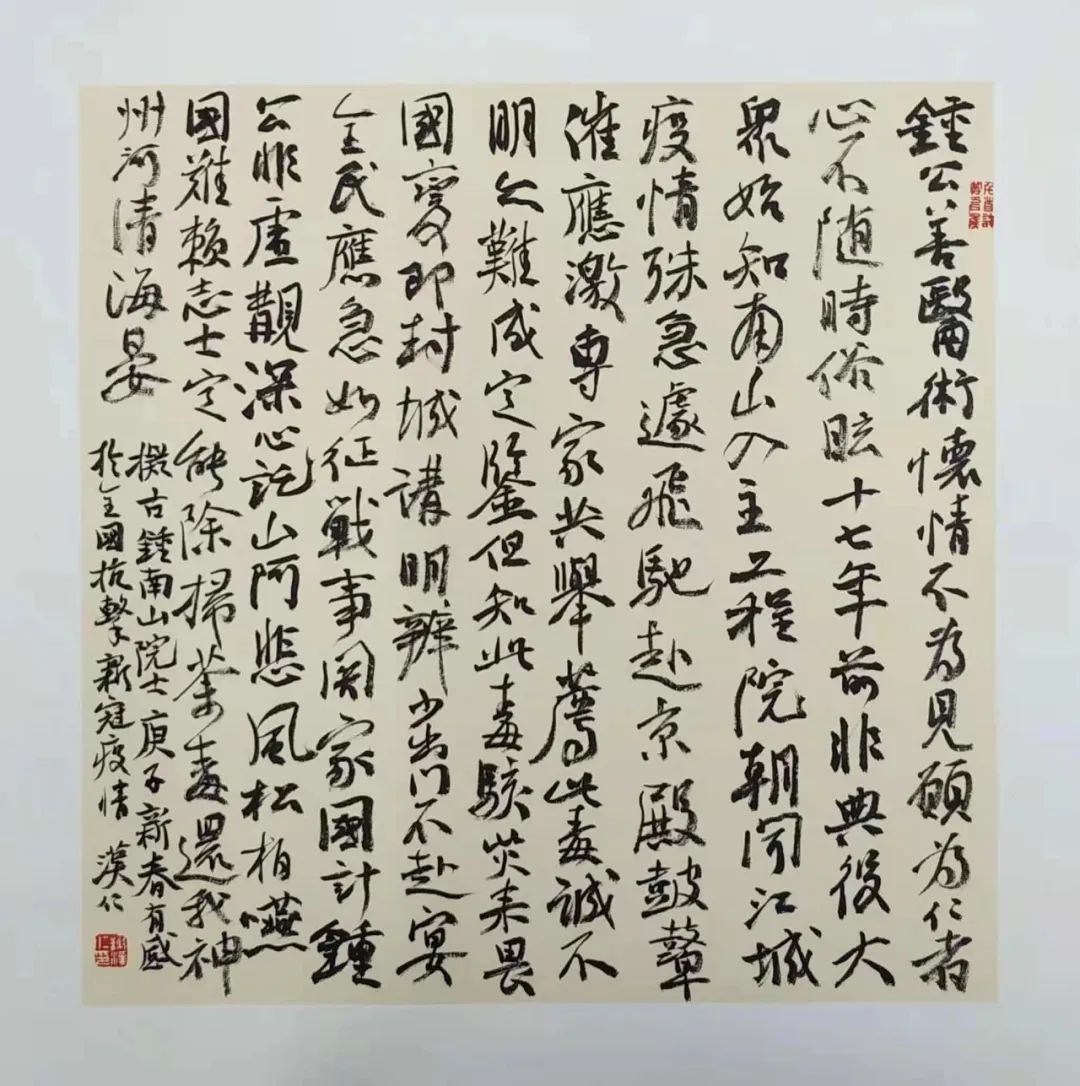 鍾公善醫術懷情不為見願為仁者
心不随時俗眩十七年前非典役大
眾始知南山入主工程院朝闻江城
疫情殊急遽飛馳赴京殿鼓鼙
催應激専家共舉薦此毒誠不
明之難成定鑒但知此毒駭災来畏
國変即封城講明辨少出门不赴宴
全民應急如征戰事関家國計鍾
公非虚覯深心託山阿悲風松柏嚥
國难赖志士定能除掃荼毒還我神
州河清海晏
擬古鍾南山院士庚子新春有感
於全國抗擊新冠疫情 漠仁